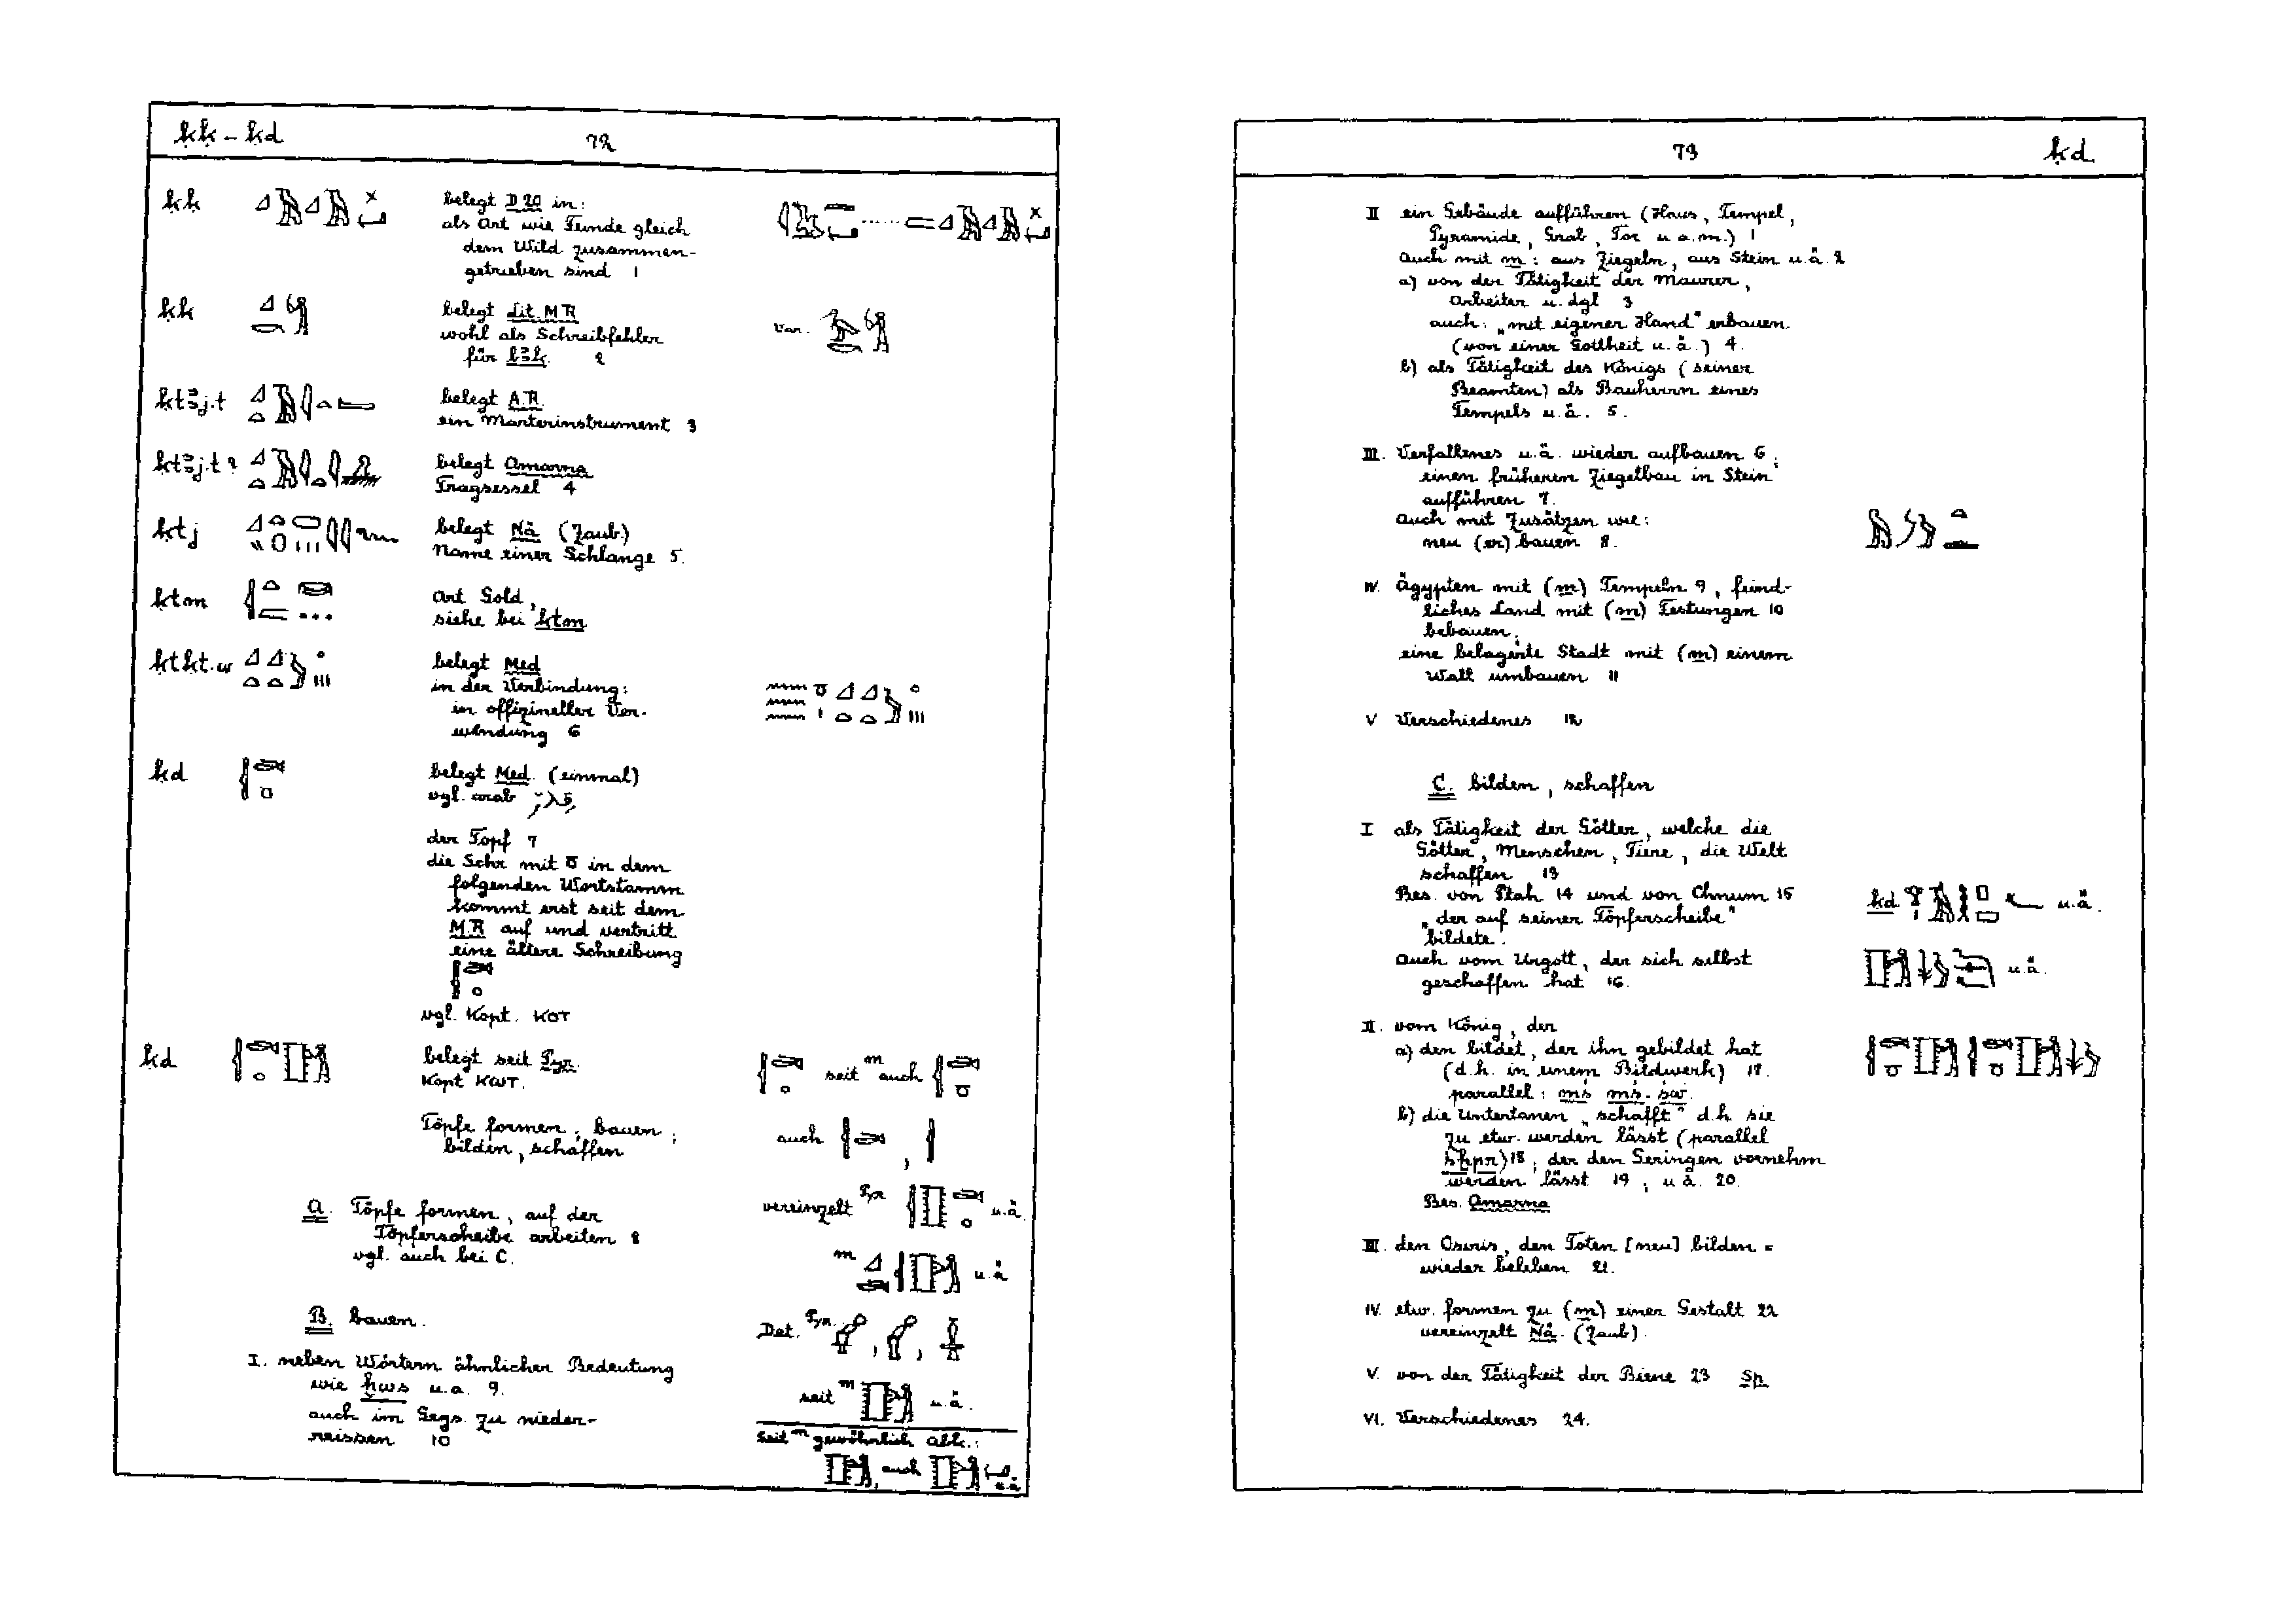 ḳḳ - ḳd 72
ḳḳ belegt D 20 in:
als Art wie Feinde gleich
dem Wild zusammen-
getrieben sind 1
ḳk belegt Lit. MR
wohl als Schreibfehler
für bꜣk. 2
Var.
ḳtꜣj.t belegt A.R.
ein Marterinstrument 3
ḳtꜣj.t ? belegt Amarna
Tragsessel 4
ḳtj belegt Nä (Zaub.)
Name einer Schlange 5.
ḳtm Art Gold,
siehe bei ktm
ḳtḳt.w belegt Med
in der Verbindung:
in offizineller Ver-
wendung 6
ḳd belegt Med. (einmal)
vgl. arab
der Topf 7
die Schr mit in dem
folgenden Wortstamm
kommt erst seit dem
MR auf und vertritt
eine ältere Schreibung
vgl. Kopt. ⲕⲟⲧ
ḳd belegt seit Pyr.
Kopt ⲕⲱⲧ.
seit m auch
Töpfe formen; bauen;
bilden, schaffen
auch ,
A. Töpfe formen, auf der
Töpferscheibe arbeiten 8
vgl. auch bei C.
vereinzelt Pyr u.ä.
m u.ä
B. bauen.
Det. Pyr. , ,
I. neben Wörtern ähnlicher Bedeutung
wie ḫws u.a. 9.
auch im Gegs. zu nieder-
reissen 10
seit m u.ä.
Seit m gewöhnlich Abk.:
, auch u.ä
73 ḳd
II ein Gebäude aufführen (Haus, Tempel,
Pyramide, Grab, Tor u a.m.) 1
Auch mit m: aus Ziegeln, aus Stein u.ä. 2
a) von der Tätigkeit der Maurer,
Arbeiter u. dgl 3
auch: „mit eigener Hand" erbauen
(von einer Gottheit u.ä.) 4.
b) als Tätigkeit des Königs (seiner
Beamten) als Bauherrn eines
Tempels u.ä. 5.
III. Verfallenes u.ä. wieder aufbauen 6;
einen früheren Ziegelbau in Stein
aufführen 7.
Auch mit Zusätzen wie:
neu (er) bauen 8.
IV. Ägypten mit (m) Tempeln 9, feind-
liches Land mit (m) Festungen 10
bebauen;
eine belagerte Stadt mit (m) einem
Wall umbauen 11
V Verschiedenes 12
C. bilden, schaffen
I als Tätigkeit der Götter, welche die
Götter, Menschen, Tiere, die Welt
schaffen 13
Bes. von Ptah 14 und von Chnum 15
„der auf seiner Töpferscheibe"
bildete.
ḳd u.ä.
Auch vom Urgott, der sich selbst
geschaffen hat 16.
u.ä.
II. vom König, der
a) den bildet, der ihn gebildet hat
(d.h. in einem Bildwerk) 17.
parallel: mś mś. św.
b) die Untertanen „schafft" d.h sie
zu etw. werden lässt (parallel
śḫpr) 18; der den Geringen vornehm
werden lässt 19; u.ä. 20.
Bes. Amarna
III. den Osiris, den Toten [neu] bilden =
wieder beleben 21.
IV. etw. formen zu (m) einer Gestalt 22
vereinzelt Nä. (Zaub).
V. von der Tätigkeit der Biene 23 Sp
VI. Verschiedenes 24.